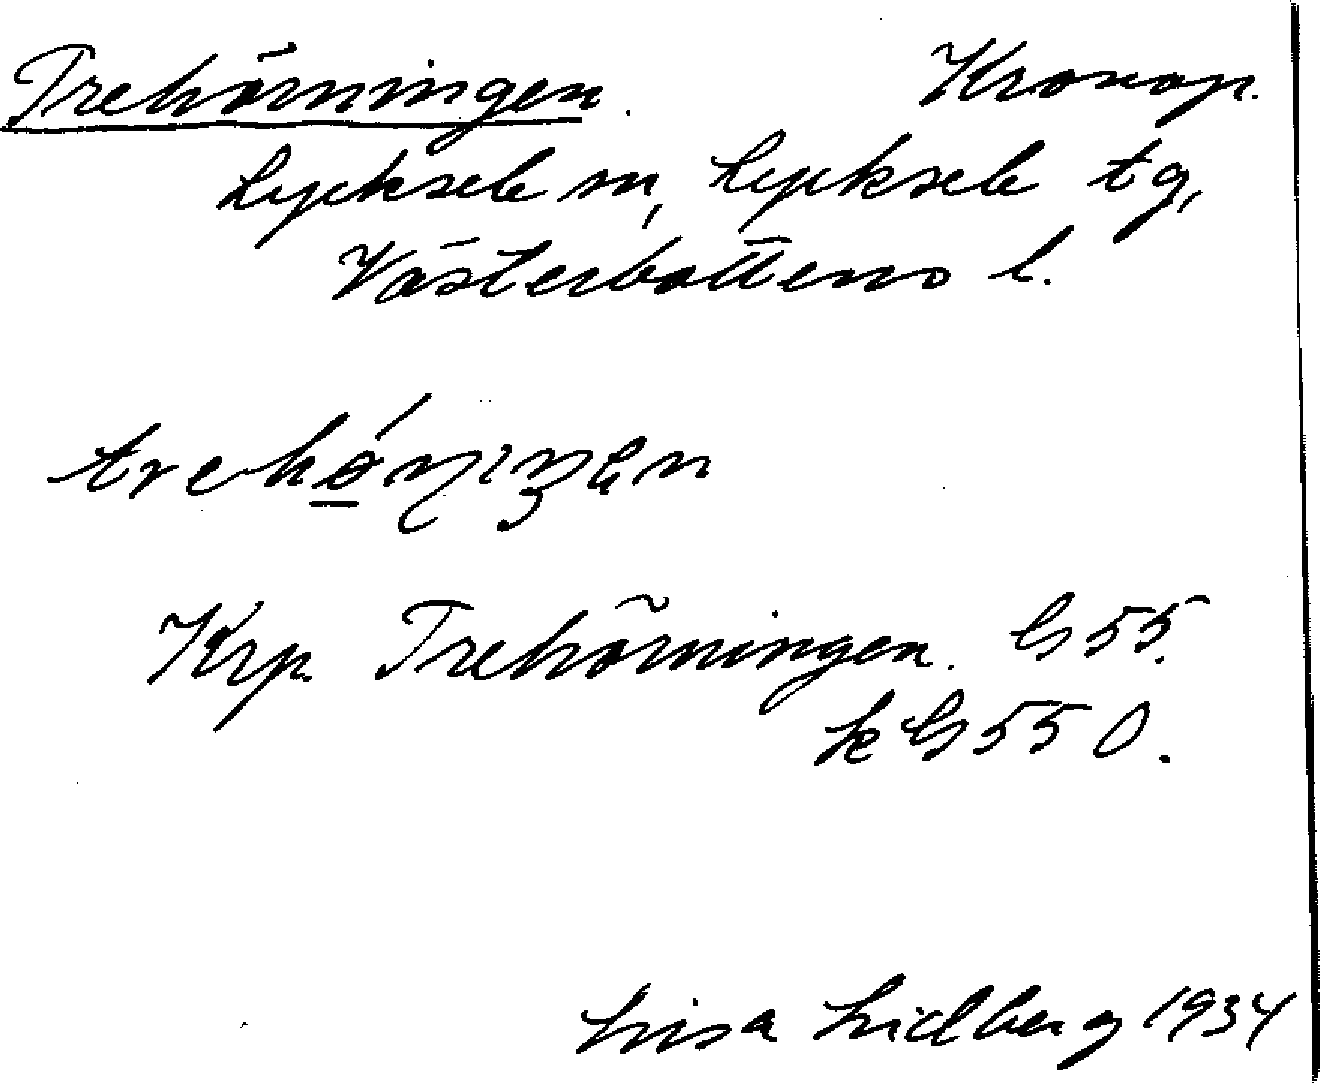 Trehörningen. Kronop.
Lycksele sn, Lycksele tg,
Västerbottens l.
Krp. Trehörningen. G55.
k G550.
Lisa Lidberg 1934